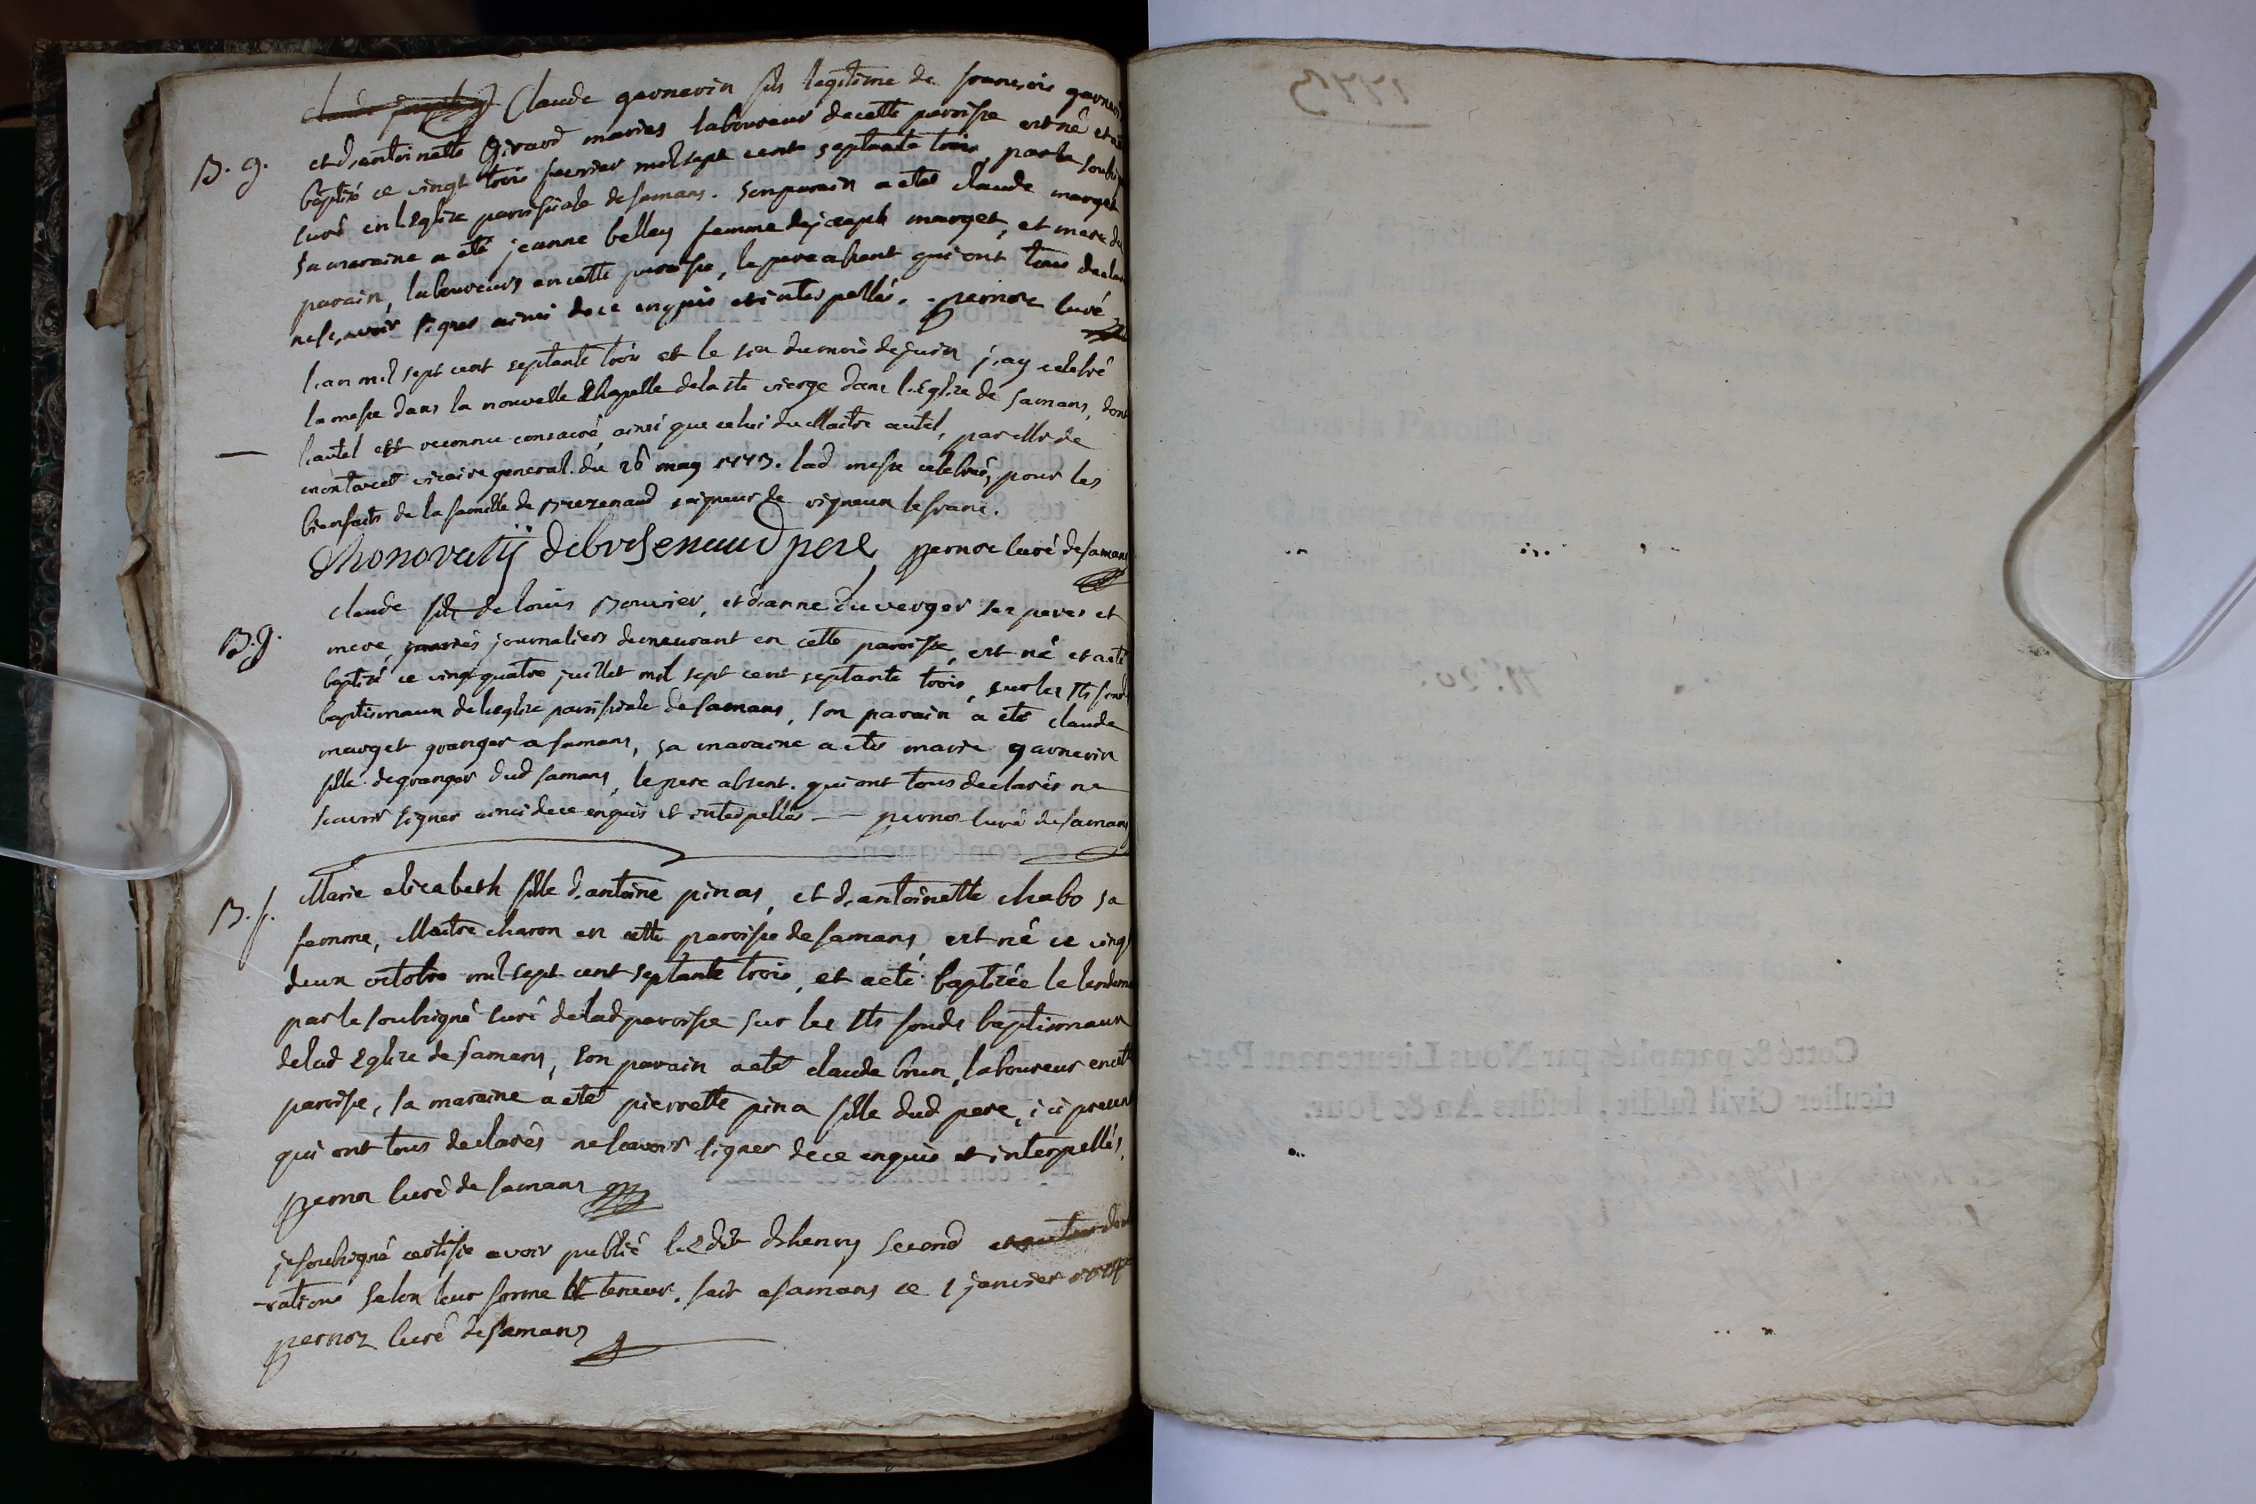 Claude garnerin fils legitime de françois garnerin
B. g. et d'antoinette Girard mariés laboureur de cette paroisse est né et a été
baptisé ce vingt trois fevrier mil sept cent septante trois, par le soubsigné
curé en l'Eglise paroissiale de samans. son parain a eté claude marget
sa maraine a eté jeanne belley femme de joseph marget, et mere du
parain, laboureurs en cette paroisse, le pere absent qui ont tous declarés
ne sçavoir signer ainsi de ce enquis et interpellés. pernoz curé
L'an mil sept cent septante trois et le six du mois de juin j'ay celebré
la messe dans la nouvelle Chapelle de la ste vierge dans l'Eglise de samans, dont
l'autel est reconnu consacré, ainsi que celui du Maitre autel, par Mr de
vicaire general. du 26 may 1773. lad messe celebrée, pour les
bienfaits de la famille de Brezenaud seigneur de vigneux le franc.
debresenaud pere, pernoz curé de samans
claude fils de louis Bouvier, et d'anne duverger ses peres et
B. g. mere, mariés journaliers demeurant en cette paroisse, est né et a eté
baptisé ce vingt quatre juillet mil sept cent septante trois, sur les sts fonds
baptismaux de l'eglise paroissiale de samans, son parain a eté claude
marget granger a samans, sa maraine a eté marie garnerin
fille de granger dud samans, le pere absent. qui ont tous declarés ne
sçavoir signer ainsi de ce enquis et interpellés — pernoz curé de samans
B. f. Marie elisabeth fille d'antoine pinas, et d'antoinette chabo sa
femme, Maitre charon en cette paroisse de samans est né ce vingt
deux octobre mil sept cent septante trois, et a eté baptisée le lendemain
par le soubsigné curé de lad paroisse sur les sts fonds baptismaux
de lad Eglise de samans, son parain a eté claude brun, laboureur en cette
paroisse, sa maraine a eté pierrette pina fille dud pere, ici present
qui ont tous declarés ne sçavoir signer de ce enquis et interpellés,
pernoz curé de samans
je soubsigné certifie avoir publié l'Edit d'henry second
-rations selon leur forme et teneur. fait a samans ce 1 janvier
pernoz curé de samans
1773
N°. 20
Cotté & paraphés par Nous Lieutenant Par-
ticulier Civil susdit, lesdits An & Jour.